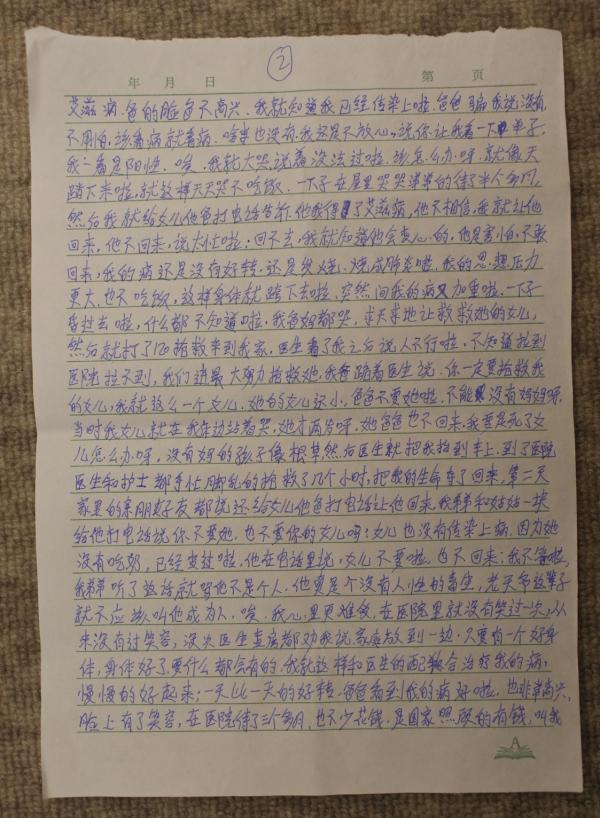 ②
年 月 日 第 页
艾滋病.爸的脸色不高兴.我就知道我已经传染上啦.爸爸骗我说没有,
不用怕.该看病就看病.啥事也没有.我还是不放心,说你让我看一下单子,
我一看是阳性.唉.我就大哭,说着没法过啦.该怎么办呀.就像天
踏下来啦,就这样天天哭不吃饭.一下子在屋里哭哭啼啼的待了半个多月,
然后我就给女儿他爸打电话告诉他我得了艾滋病,他不相信,我就让他
回来,他不回来,说太忙啦;回不去.我就知道他会变心的,他是害怕.不敢
回来,我的病还是没有好转.还是发烧、烧成肺炎啦.我的思想压力
更大.也不吃饭,这样身体就踏下去啦.突然间我的病又加重啦.一下子
昏过去啦,什么都不知道啦.我爸妈都哭.求天求地让救救她的女儿,
然后就打了120抢救车到我家,医生看了我之后说人不行啦.不知道拉到
医院拉不到,我们进最大努力抢救她,我爸跪着医生说.你一定要抢救我
的女儿,我就这么一个女儿.她的女儿还小,爸爸不要她啦.不能没有妈妈呀,
当时我女儿就在我床边站着哭,她才两岁呀.她爸爸也不回来.我要是死了女
儿怎么办呀,没有妈的孩子像根草.然后医生就把我抬到车上.到了医院
医生和护士都手忙脚乱的抢救了几个小时,把我的生命夺了回来,第二天
家里的亲朋好友都说还给女儿他爸打电话让他回来.我弟和姑姑一块
给他打电话说你不要她.也不要你的女儿吗?女儿也没有传染上病.因为她
没有吃奶,已经查过啦,他在电话里说,女儿不要啦.也不回来;我不管啦,
我弟弟听了这话就骂他不是个人.他真是个没有人性的畜生,老天爷这辈子
就不应该叫他成为人,唉.我心里更难受,在医院里就没有笑过一次,从
来没有过笑容,没次医生查房都劝我说家庭放到一边.只要有一个好身
体,身体好了要什么都会有的.我就这样和医生的配合治疗我的病,
慢慢的好起来,一天比一天的好转.爸爸看到我的病好啦.也非常高兴.
脸上有了笑容,在医院待了三个多月.也不少花钱.是国家照顾的有钱,叫我